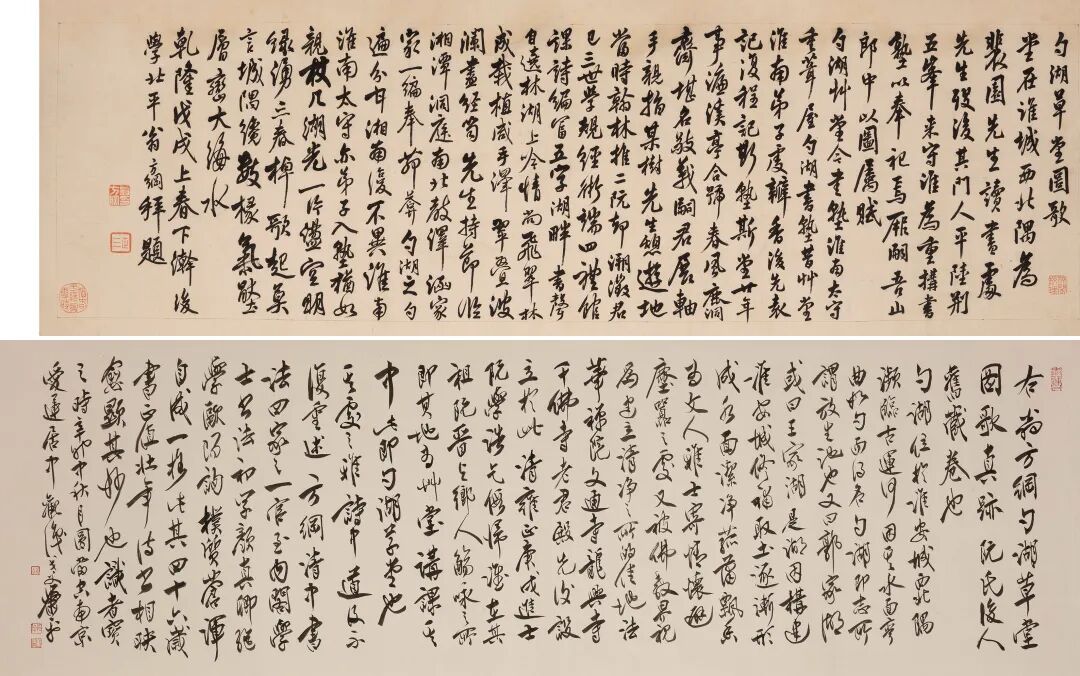 勺湖草堂圖歌
堂在淮城西北隅為
裴園先生讀書處
先生歿後其門人平陸荆
五峯来守淮為重構書
塾以奉 祀焉厥嗣吾山
郎中以圖屬賦
勺湖艸堂今書塾淮南太守
重葺屋勺湖書塾昔艸堂
淮南弟子處瓣香後先数
記復程記斯塾斯堂廿年
事濂溪亭合號春風鹿洞
齋堪名敬義嗣君展軸
手親指某樹先生憩遊地
當時翰林推二阮却溯徵君
已三世學規經術端四禮館
課詩編富五字湖畔書聲
自遠林湖上冷情尚飛翠林
成栽植感手澤翠疊波
瀾盡經笥先生持節臨
湘潭洞庭南北教澤涵家
家一編奉茆蕝勺湖之勺
遍分甘湘南復不異淮南
淮南太守亦弟子入塾猶如
親杖几湖光一片澹空明
綠湧三春棹歌起莫
言城隅繞數椽氣壓
層巒大海水
乾隆戊戌上春下澣後
學北平翁方綱拜題
右翁方綱勺湖草堂
圖歌真跡阮氏後人
舊藏卷也
勺湖位於淮安城西北隅
瀕臨古運河因其水面彎
曲如勺而得名勺湖即志所
謂放生池也又曰郭家湖
或曰王家湖是湖因構建
淮安城修堨取土逐漸形
成水面潔净菰蒲飄香
為文人雅士寄情懷避
塵囂之處又被佛教界視
為建立清净之所的佳地法
華禪院文通寺龍興寺
千佛寺老君殿先後設
立於此清雍正庚戌進士
阮學浩乞假歸淮在其
祖阮晋與鄉人觴咏之所
即其地為艸堂講課其
中此即勺湖草堂也
方綱清中書
法四家之一官至内閣學
士書法初學顔真卿繼
學歐陽詢樸實蒼渾
自成一格此其四十六歲
書正值壯年詩書相映
愈顯其妙也識者寶
之時辛卯中秋月圓當空南京
愛蓮居中